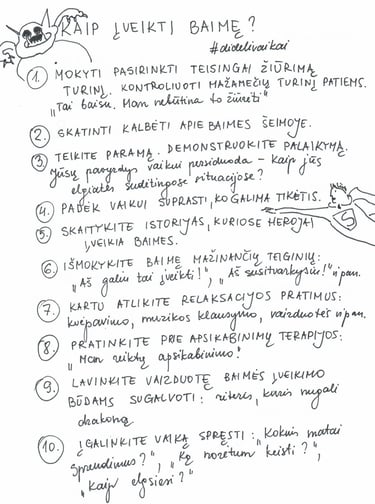 KAIP ĮVEIKTI BAIMĘ?
#didelivaikai
1. MOKYTI PASIRINKTI TEISINGAI ŽIŪRIMĄ
TURINĮ. KONTROLIUOTI MAŽAMEČIŲ TURINĮ PATIEMS.
„Tai baisu. Man nebūtina to žiūrėti“
2. SKATINTI KALBĖTI APIE BAIMES ŠEIMOJE.
3. TEIKITE PARAMĄ. DEMONSTRUOKITE PALAIKYMĄ.
Jūsų pavyzdys vaikui persiduoda – kaip jūs
elgiatės sudėtingose situacijose?
4. PADĖK VAIKUI SUPRASTI, KO GALIMA TIKĖTIS.
5. SKAITYKITE ISTORIJAS, KURIOSE HEROJAI
ĮVEIKIA BAIMES.
6. IŠMOKYKITE BAIMĘ MAŽINANČIŲ TEIGINIŲ:
„Aš galiu tai įveikti!“, „Aš susitvarkysiu!“ ir pan.
7. KARTU ATLIKITE RELAKSACIJOS PRATIMUS:
kvėpavimo, muzikos klausymo, vaizduotės ir pan.
8. PRATINKITE PRIE APSIKABINIMŲ TERAPIJOS:
„Man reiktų apsikabinimo!
9. LAVINKITE VAIZDUOTĘ BAIMĖS ĮVEIKIMO
BŪDAMS SUGALVOTI: riteris, kuris nugali
drakoną.
10. ĮGALINKITE VAIKĄ SPRĘSTI: „Kokius matai
sprendimus?“, „Ką norėtum keisti?“,
„Kaip elgsiesi?“
S